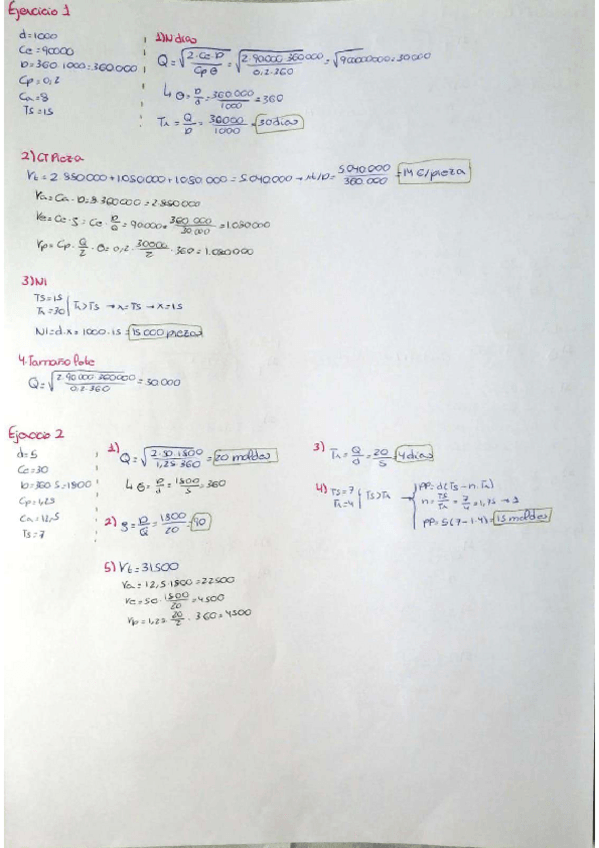 Ejercicio 1
d=1000
Ce=90000
D=360·1000=360.000
Cp=0,2
Ca=8
Ts=15
1) N dias
Q=√(2·Ce·D / Cp θ)=√(2·90000·360000 / 0,2·360)=√900000000=30000
↳ θ=D/d=360.000/1000=360
Tr=Q/D=30000/1000=30 dias
2) CT Pieza
Vt=2.880000+1080000+1080000=5.040000→Vt/D=5.040000/360.000=14 €/pieza
Va=Ca·D=8·360000=2.880000
Ve=Ce·S=Ce·D/Q=90000·360000/30.000=1.080000
Vp=Cp·Q/2·θ=0,2·30000/2·360=1.080000
3) Ni
Ts=15
Tr=30 | Tr>Ts →x=Ts →x=15
Ni=d·x=1000·15=15000 piezas
4. Tamaño lote
Q=√(2·90000·360000 / 0,2·360)=30000
Ejercicio 2
d=5
Ce=30
D=360·5=1800
Cp=1,25
Ca=12,5
Ts=7
1) Q=√(2·50·1800 / 1,25·360)=20 moldes
↳ θ=D/d=1800/5=360
2) S=D/Q=1800/20=90
3) Tr=Q/d=20/5=4 dias
4) Ts=7
Tr=4 | Ts>Tr →
PP=d(Ts-n·Tr)
n=Ts/Tr=7/4=1,75→1
PP=5(7-1·4)=15 moldes
5) Vt=31500
Va=12,5·1800=22500
Ve=50·1800/20=4500
Vp=1,25·20/2·360=4500